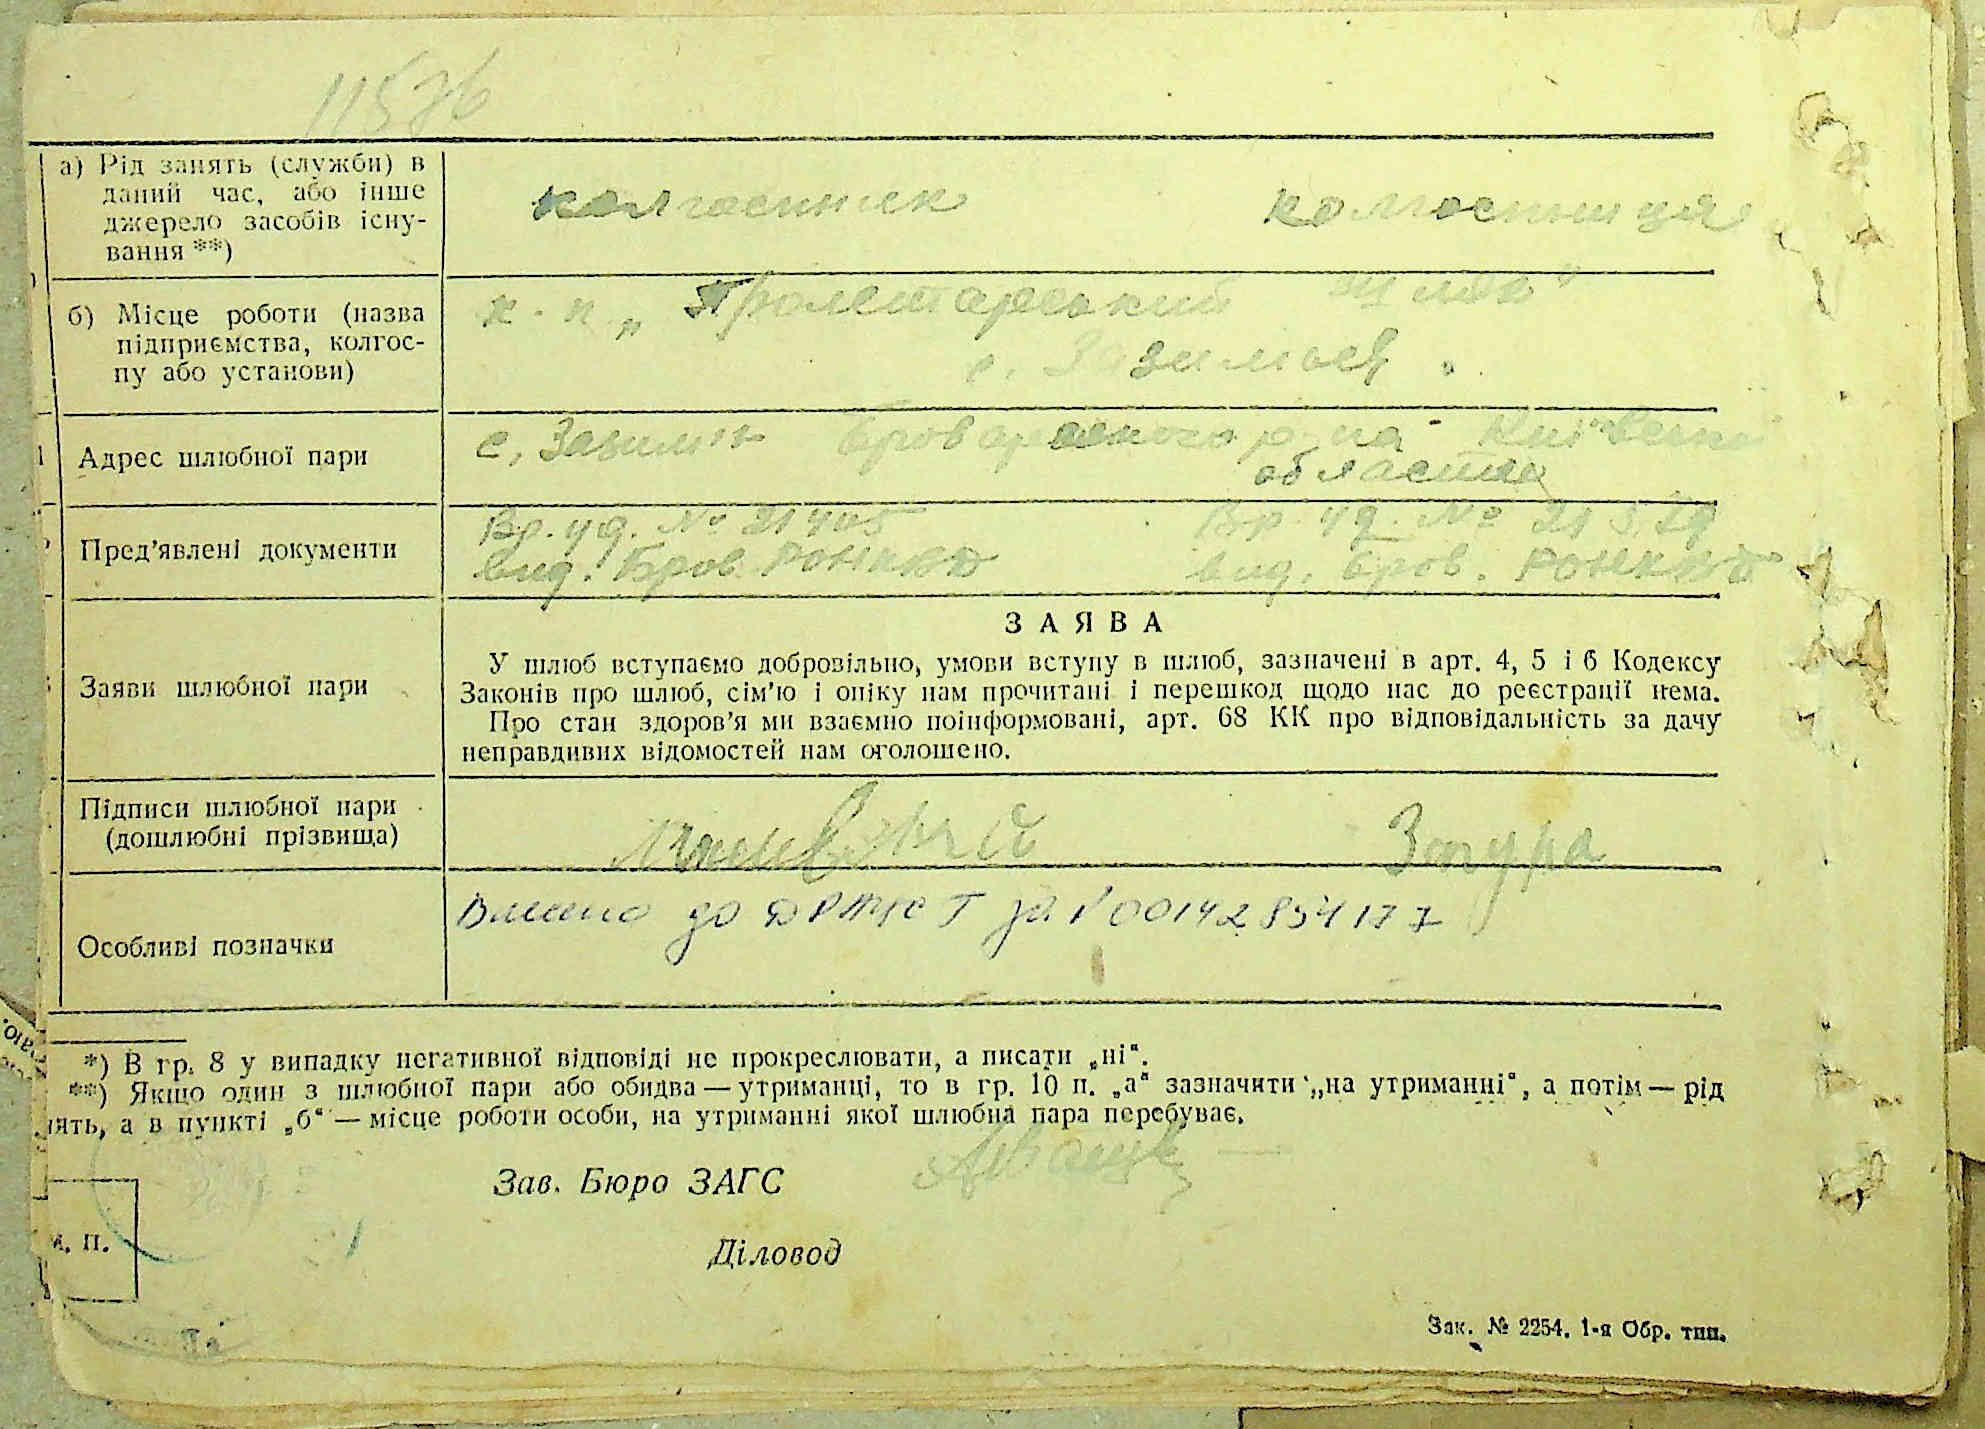 11576
а) Рід занять (служби) в
даний час, або інше
джерело засобів існу-
вання **)
колгоспник колгоспниця
б) Місце роботи (назва
підприємства, колгос-
пу або установи)
к. п. „Пролетарський Шлях"
с. Зазимья.
Адрес шлюбної пари
с, Зазимья Броварського р-на Київської
области
Пред’явлені документи
Вр. уд. № 21405 Вр. уд. №
вид. Бров. РОНКВД вид. Бров. РОНКВД
Заяви шлюбної пари
ЗАЯВА
У шлюб вступаємо добровільно, умови вступу в шлюб, зазначені в арт. 4, 5 і 6 Кодексу
Законів про шлюб, сім’ю і опіку нам прочитані і перешкод щодо нас до реєстрації нема.
Про стан здоров’я ми взаємно поінформовані, арт. 68 КК про відповідальність за дачу
неправдивих відомостей нам оголошено.
Підписи шлюбної пари
(дошлюбні прізвища)
Особливі позначки
Внесено до ДРАЦС за №00142854177
*) В гр. 8 у випадку негативної відповіді не прокреслювати, а писати „ні“.
**) Якщо один з шлюбної пари або обидва — утриманці, то в гр. 10 п. „а“ зазначити „на утриманні“, а потім — рід
нять, а в пункті „б“ — місце роботи особи, на утриманні якої шлюбна пара перебуває.
Зав. Бюро ЗАГС
М. П.
Діловод
Зак. № 2254. 1-я Обр. тип.